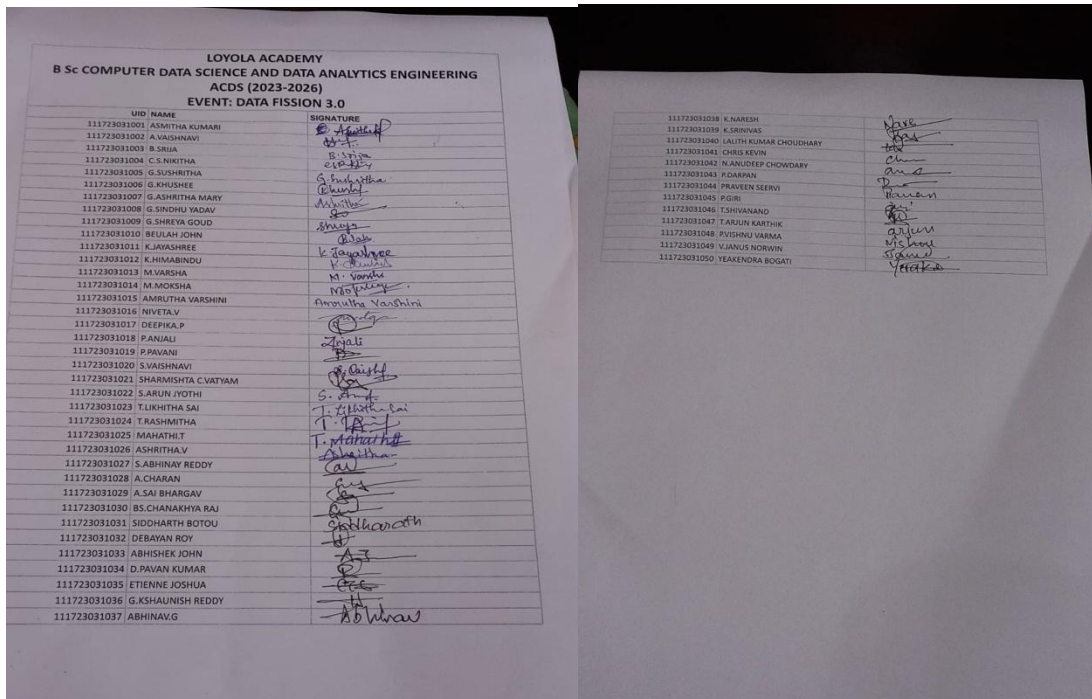 LOYOLA ACADEMY
B Sc COMPUTER DATA SCIENCE AND DATA ANALYTICS ENGINEERING
ACDS (2023-2026)
EVENT: DATA FISSION 3.0
UID NAME SIGNATURE
111723031001 ASMITHA KUMARI
111723031002 A.VAISHNAVI
111723031003 B.SRIJA B.Srija
111723031004 C.S.NIKITHA
111723031005 G.SUSHRITHA G.Sushritha
111723031006 G.KHUSHEE
111723031007 G.ASHRITHA MARY Ashritha
111723031008 G.SINDHU YADAV
111723031009 G.SHREYA GOUD Shreya
111723031010 BEULAH JOHN
111723031011 K.JAYASHREE K Jayashree
111723031012 K.HIMABINDU
111723031013 M.VARSHA M. Varsha
111723031014 M.MOKSHA
111723031015 AMRUTHA VARSHINI Amrutha Varshini
111723031016 NIVETA.V
111723031017 DEEPIKA.P
111723031018 P.ANJALI Anjali
111723031019 P.PAVANI
111723031020 S.VAISHNAVI
111723031021 SHARMISHTA C.VATYAM
111723031022 S.ARUN JYOTHI
111723031023 T.LIKHITHA SAI T. Likhitha Sai
111723031024 T.RASHMITHA
111723031025 MAHATHI.T T. Mahathi
111723031026 ASHRITHA.V Ashritha
111723031027 S.ABHINAY REDDY
111723031028 A.CHARAN
111723031029 A.SAI BHARGAV
111723031030 BS.CHANAKHYA RAJ
111723031031 SIDDHARTH BOTOU Siddharath
111723031032 DEBAYAN ROY
111723031033 ABHISHEK JOHN AJ
111723031034 D.PAVAN KUMAR
111723031035 ETIENNE JOSHUA
111723031036 G.KSHAUNISH REDDY
111723031037 ABHINAV.G Abhinav
111723031038 K.NARESH
111723031039 K.SRINIVAS
111723031040 LALITH KUMAR CHOUDHARY
111723031041 CHRIS KEVIN
111723031042 N.ANUDEEP CHOWDARY
111723031043 P.DARPAN
111723031044 PRAVEEN SEERVI
111723031045 P.GIRI
111723031046 T.SHIVANAND
111723031047 T.ARJUN KARTHIK arjun
111723031048 P.VISHNU VARMA
111723031049 V.JANUS NORWIN
111723031050 YEAKENDRA BOGATI